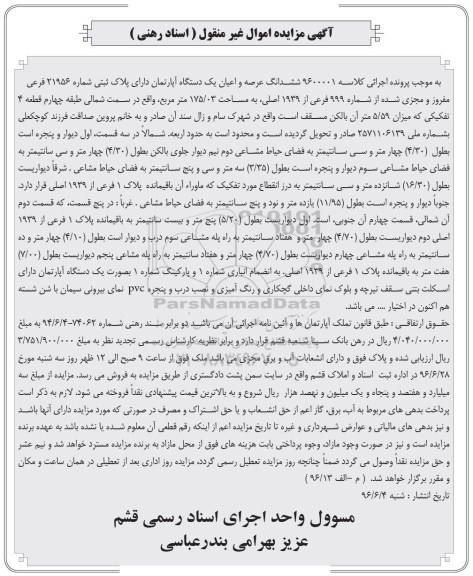 آگهی مزایده اموال غیر منقول ( اسناد رهنی )
به موجب پرونده اجرائی کلاسه ۹۶۰۰۰۰۱ ششدانگ عرصه و اعیان یک دستگاه آپارتمان دارای پلاک ثبتی شماره ۲۱۹۵۶ فرعی
مفروز و مجزی شده از شماره ۹۹۹ فرعی از ۱۹۳۹ اصلی، به مساحت ۱۷۵/۰۳ متر مربع، واقع در سمت شمالی طبقه چهارم قطعه ۴
تفکیکی که میزان ۵/۵۹ متر آن بالکن مسقف است واقع در شهرک سام و زال سند آن صادر و به خانم پروین صداقت فرزند کوچکعلی
بشماره ملی ۲۵۷۱۱۰۶۱۳۹ صادر و تحویل گردیده است و محدود است به حدود اربعه. شمالاً در سه قسمت، اول دیوار و پنجره است
بطول (۴/۳۰) چهار متر و سی سانتیمتر به فضای حیاط مشاعی دوم نیم دیوار جلوی بالکن بطول (۴/۳۰) چهار متر و سی سانتیمتر به
فضای حیاط مشاعی سوم دیوار و پنجره است بطول (۳/۳۵) سه متر و سی و پنج سانتیمتر به فضای حیاط مشاعی . شرقاً دیواریست
بطول (۱۶/۳۰) شانزده متر و سی سانتیمتر به درز انقطاع مورد تفکیک که ماوراء آن باقیمانده پلاک ۱ فرعی از ۱۹۳۹ اصلی قرار دارد.
جنوباً دیوار و پنجره است بطول (۱۱/۹۵) یازده متر و نود و پنج سانتیمتر به فضای حیاط مشاعی . غرباً : در پنج قسمت، که قسمت دوم
آن شمالی، قسمت چهارم آن جنوبی، است. اول دیواریست بطول (۵/۲۰) پنج متر و بیست سانتیمتر به باقیمانده پلاک ۱ فرعی از ۱۹۳۹
اصلی دوم دیواریست بطول (۴/۷۰) چهار متر و هفتاد سانتیمتر به راه پله مشاعی سوم درب و دیوار است بطول (۴/۱۰) چهار متر و ده
سانتیمتر به راه پله مشاعی چهارم دیواریست بطول (۴/۷۰) چهار متر و هفتاد سانتیمتر به راه پله مشاعی پنجم دیواریست بطول (۷/۰۰)
هفت متر به باقیمانده پلاک ۱ فرعی از ۱۹۳۹ اصلی. به انضمام انباری شماره ۱ و پارکینگ شماره ۱ بصورت یک دستگاه آپارتمان دارای
اسکلت بتنی سقف تیرچه و بلوک نمای داخلی گچکاری و رنگ آمیزی و نصب درب و پنجره pvc نمای بیرونی سیمان با شن شسته
هم اکنون در اختیار .... می باشد.
حقوق ارتفاقی : طبق قانون تملک آپارتمان ها و آئین نامه اجرائی آن می باشد دو برابر سند رهنی شماره ۷۴۰۶۲-۹۴/۶/۴ به مبلغ
۴/۰۴۰/۰۰۰/۰۰۰ ریال در رهن بانک سینا شعبه قشم قرار دارد و برابر نظریه کارشناس رسمی تجدید نظر به مبلغ ۳/۷۵۱/۹۰۰/۰۰۰
ریال ارزیابی شده و پلاک فوق و دارای انشعابات آب و برق مجزی می باشد ملک فوق از ساعت ۹ صبح الی ۱۲ ظهر روز سه شنبه مورخ
۹۶/۶/۲۸ در اداره ثبت اسناد و املاک قشم واقع در سایت سمن پشت دادگستری از طریق مزایده به فروش می رسد. مزایده از مبلغ سه
میلیارد و هفتصد و پنجاه و یک میلیون و نهصد هزار ریال شروع و به بالاترین قیمت پیشنهادی نقداً فروخته می شود. لازم به ذکر است
پرداخت بدهی های مربوط به آب، برق، گاز اعم از حق انشعاب و یا حق اشتراک و مصرف در صورتی که مورد مزایده دارای آنها باشد
و نیز بدهی های مالیاتی و عوارض شهرداری و غیره تا تاریخ مزایده اعم از اینکه رقم قطعی آن معلوم شده یا نشده باشد به عهده برنده
مزایده است و نیز در صورت وجود مازاد، وجوه پرداختی بابت هزینه های فوق از محل مازاد به برنده مزایده مسترد خواهد شد و نیم عشر
و حق مزایده نقداً وصول می گردد ضمناً چنانچه روز مزایده تعطیل رسمی گردد، مزایده روز اداری بعد از تعطیلی در همان ساعت و مکان
و مقرر برگزار خواهد شد. ( م -الف ۹۶/۱۳ )
تاریخ انتشار : شنبه ۹۶/۶/۴
مسوول واحد اجرای اسناد رسمی قشم
عزیز بهرامی بندرعباسی
ParsNamadData